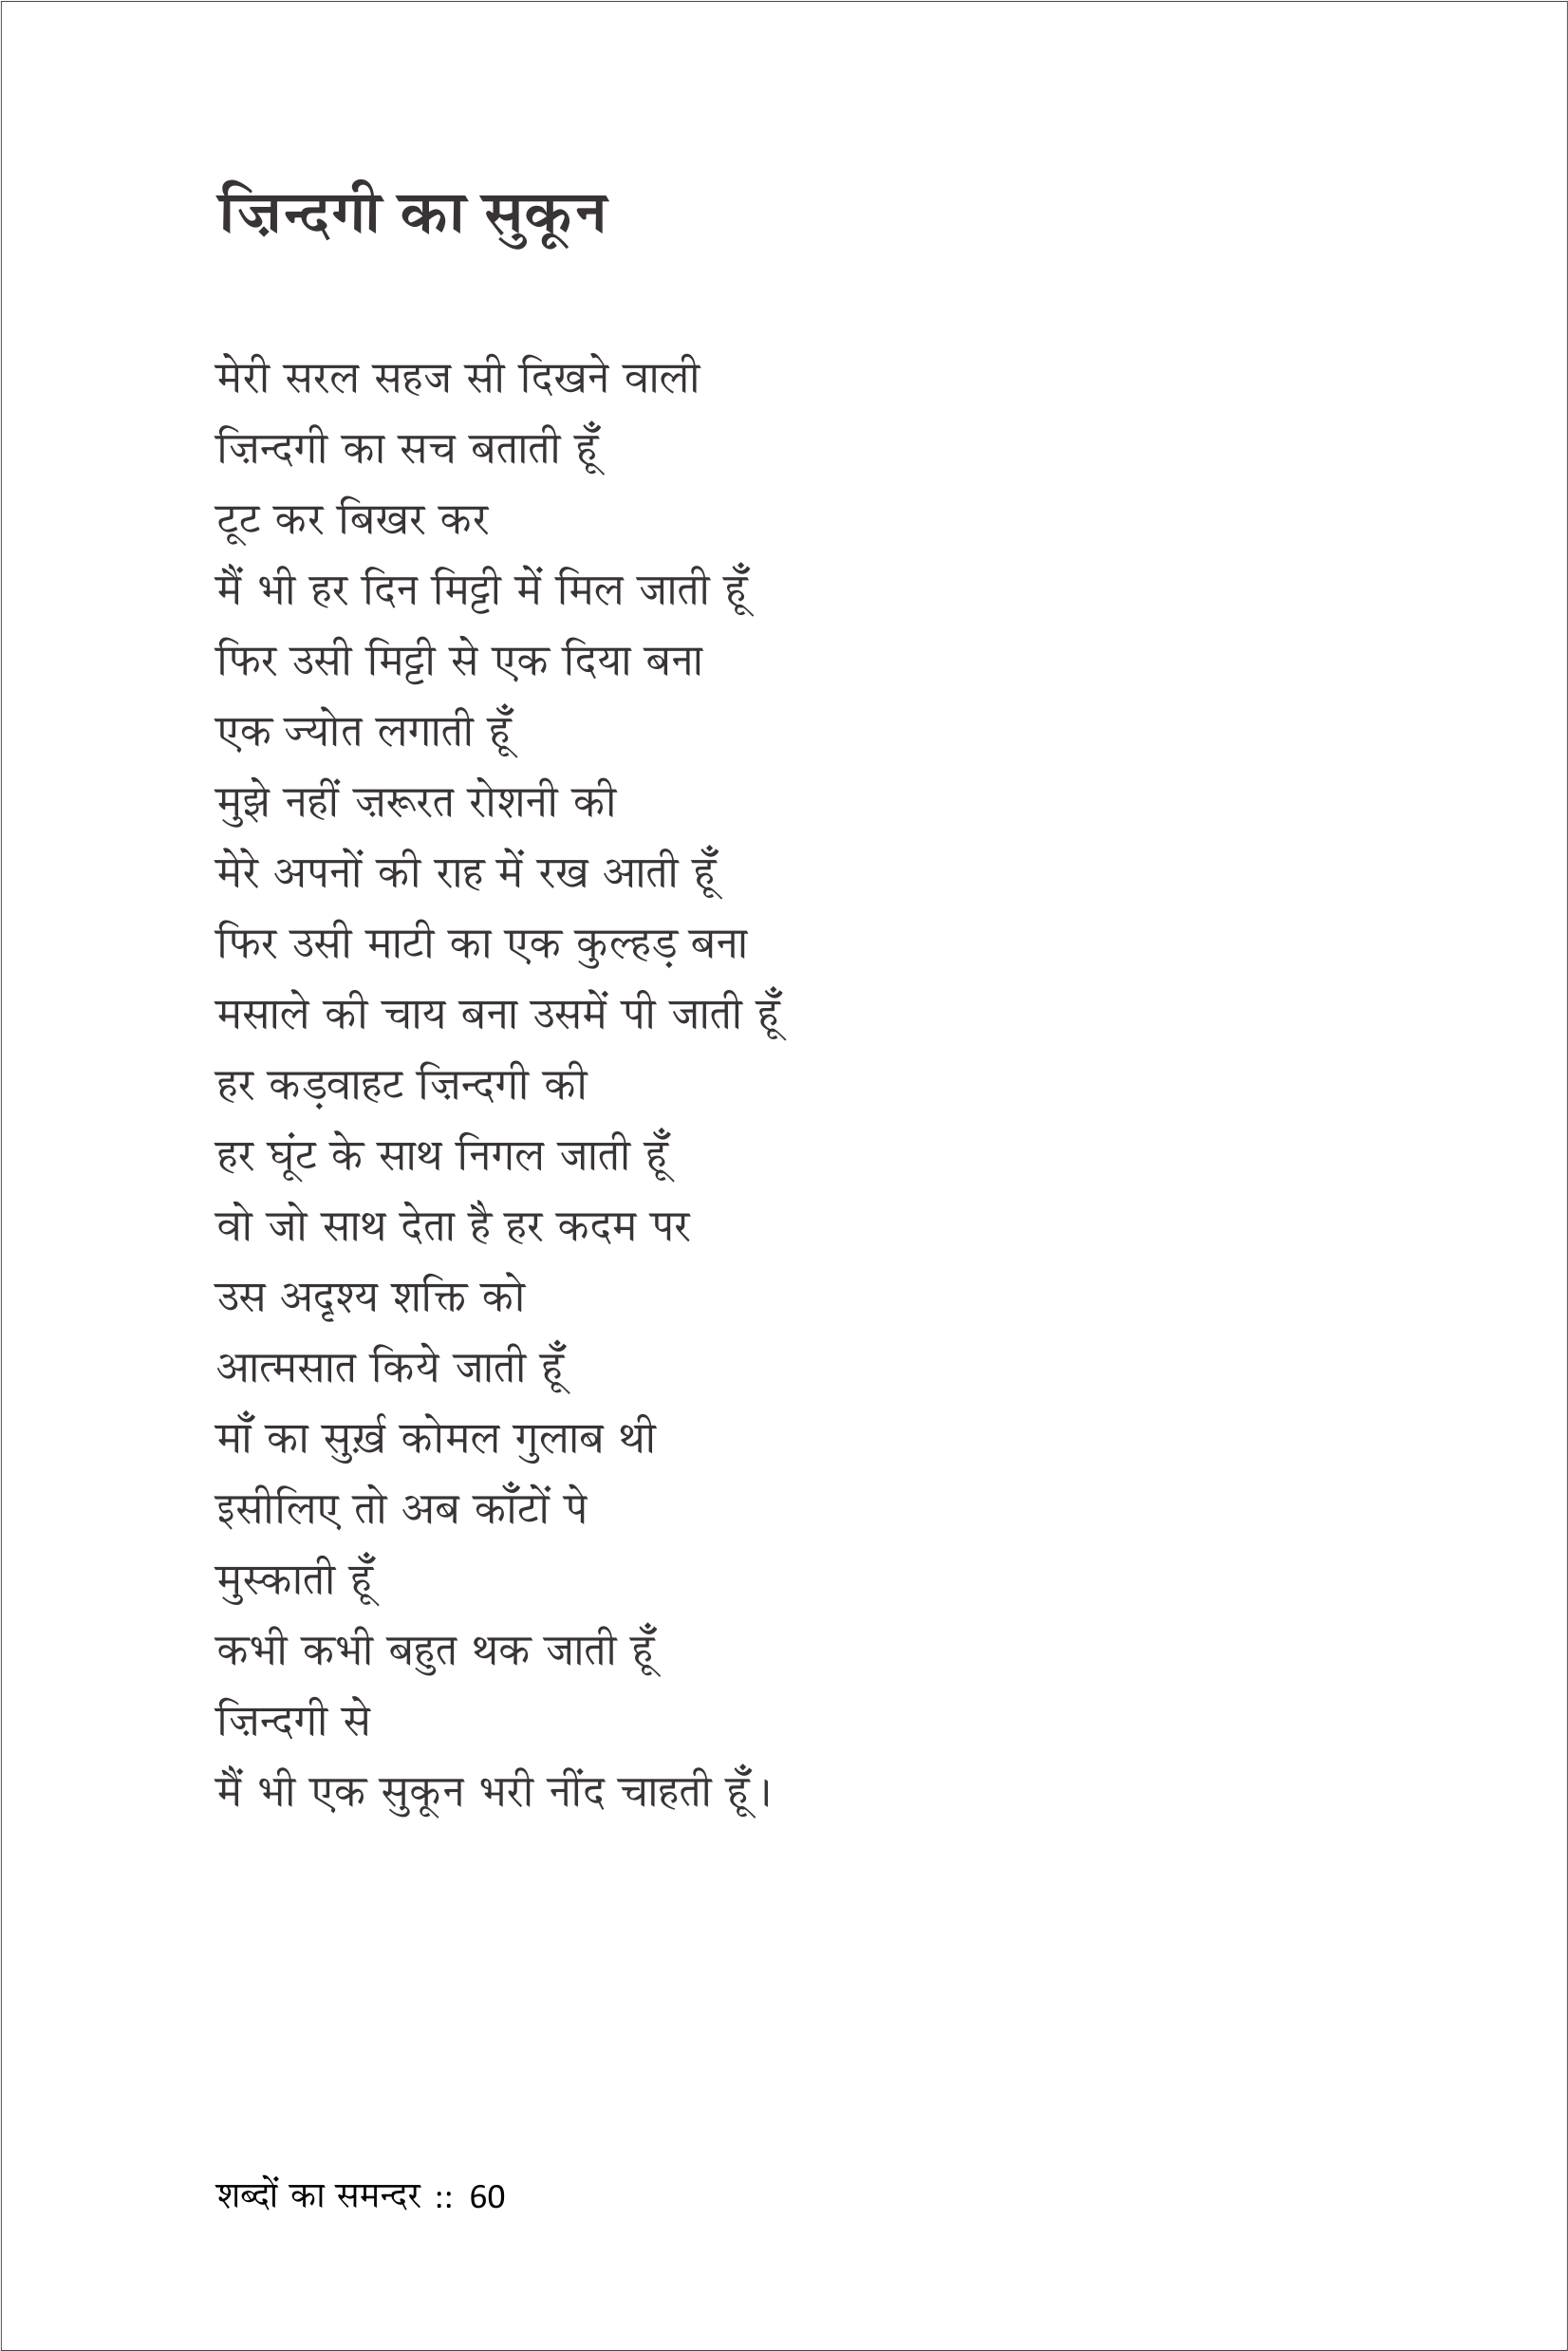 ज़िन्दगी का सुकून
मेरी सरल सहज सी दिखने वाली
ज़िन्दगी का सच बताती हूँ
टूट कर बिखर कर
मैं भी हर दिन मिट्टी में मिल जाती हूँ
फिर उसी मिट्टी से एक दिया बना
एक ज्योत लगाती हूँ
मुझे नहीं ज़रूरत रोशनी की
मेरे अपनों की राह में रख आती हूँ
फिर उसी माटी का एक कुल्हड़ बना
मसाले की चाय बना उसमें पी जाती हूँ
हर कड़वाहट ज़िन्दगी की
हर घूंट के साथ निगल जाती हूँ
वो जो साथ देता है हर कदम पर
उस अदृश्य शक्ति को
आत्मसात किये जाती हूँ
माँ का सुर्ख़ कोमल गुलाब थी
इसीलिए तो अब काँटों पे
मुस्काती हूँ
कभी कभी बहुत थक जाती हूँ
ज़िन्दगी से
मैं भी एक सुकून भरी नींद चाहती हूँ।
शब्दों का समन्दर :: 60